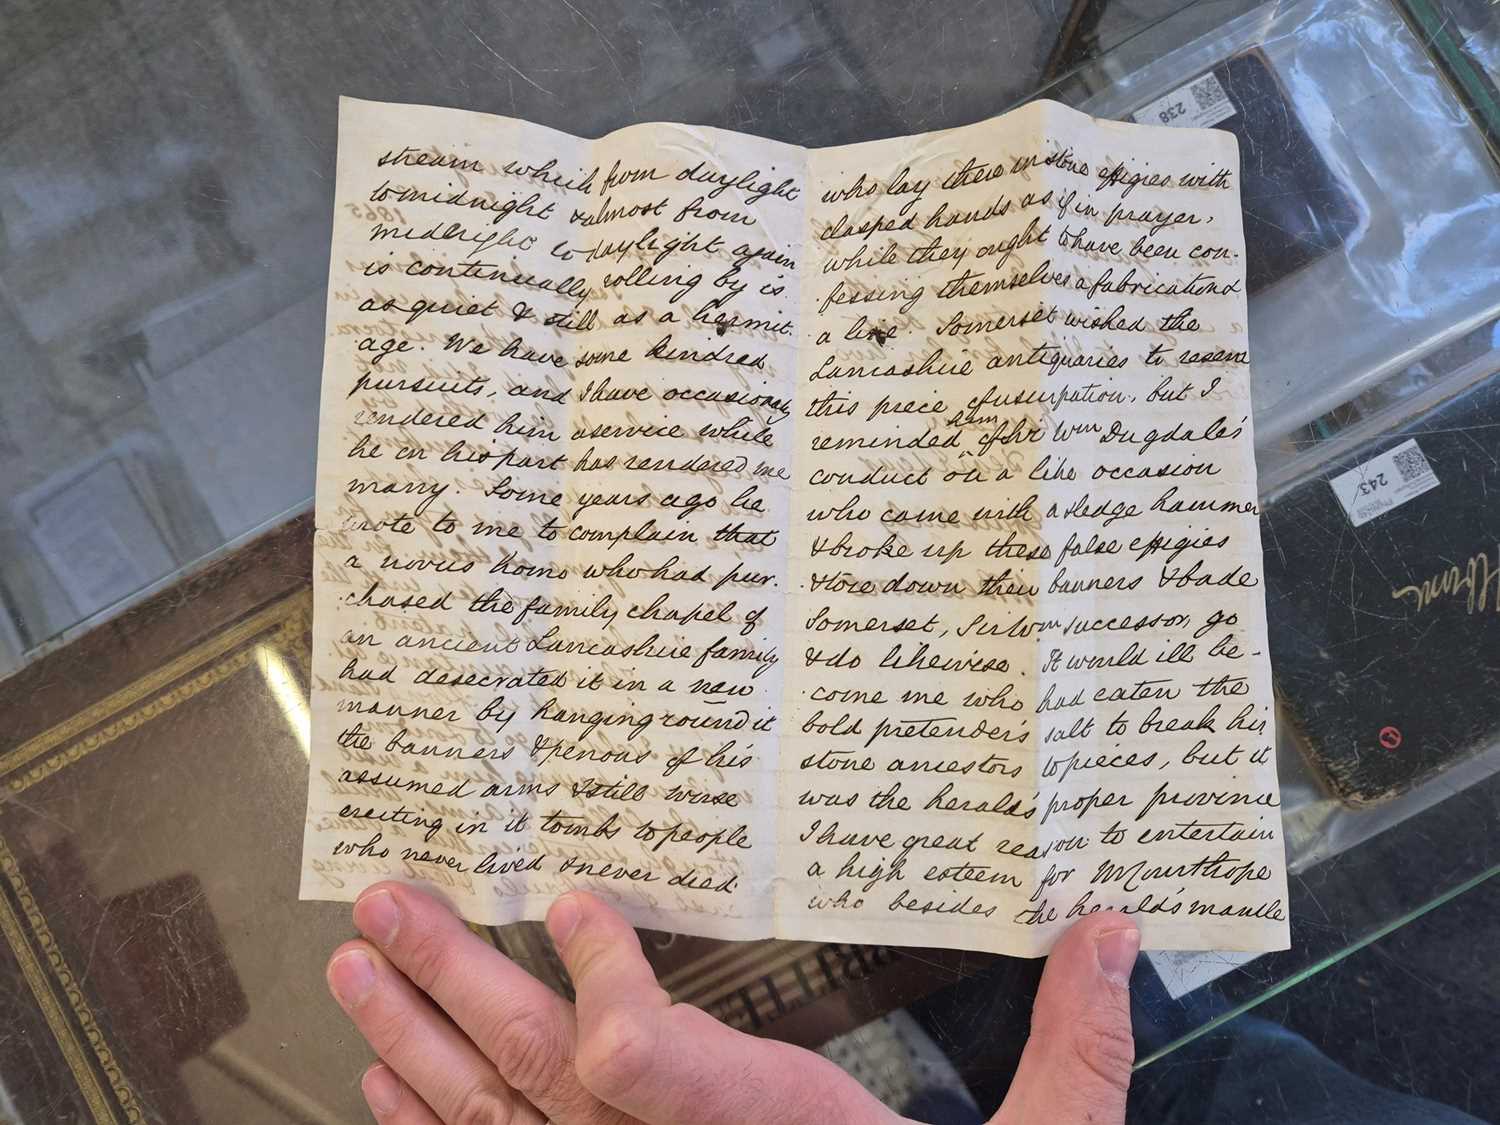 stream which from daylight
to midnight & almost from
midnight to daylight again
is continually rolling by is
as quiet & still as a hermit.
age. We have some kindred
pursuits, and I have occasionally
rendered him a service while
he on his part has rendered me
many. Some years ago he
wrote to me to complain that
a novus homo who had pur.
chased the family chapel of
an ancient Lancashire family
had desecrated it in a new
manner by hanging round it
the banners & penons of his
assumed arms & still worse
erecting in it tombs to people
who never lived & never died.
who lay there in stone effigies with
clasped hands as if in prayer,
while they ought to have been con-
fessing themselves a fabrication &
a lie. Somerset wished the
Lancashire antiquaries to resent
this piece of usurpation, but I
reminded him of Sir Wm Dugdale's
conduct on a like occasion
who came with a sledge hammer
& broke up these false effigies
& tore down their banners & bade
Somerset, Sir Wm successor, go
& do likewise. It would ill be-
come me who had eaten the
bold pretender's salt to break his
stone ancestors to pieces, but it
was the herald's proper province
I have great reason to entertain
a high esteem for M Courthope
who besides the herald's mantle
1865
238
243
Album